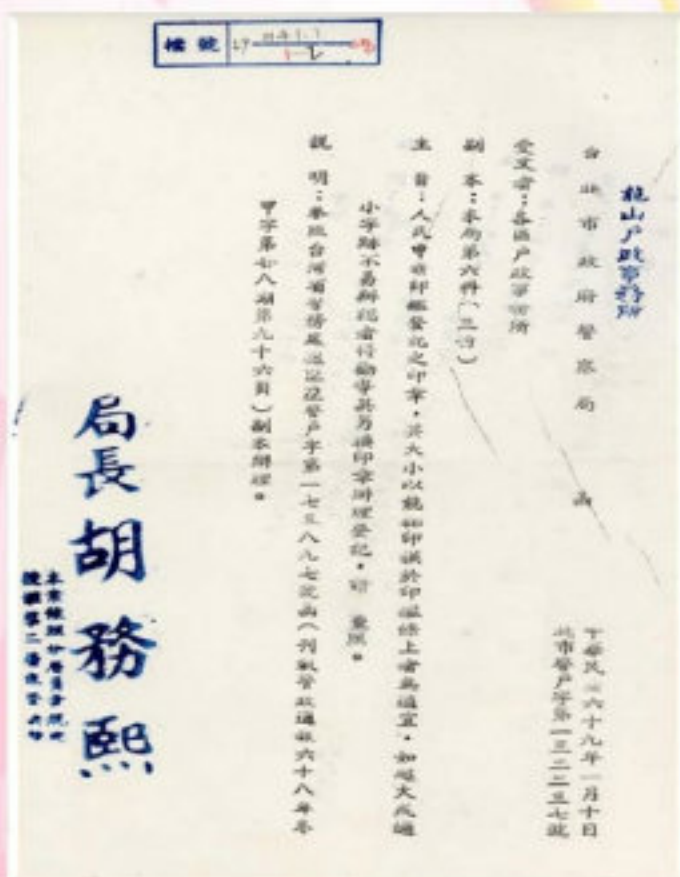 檔號
松山戶政事務所
台北市政府警察局 函
中華民國六十九年一月十日
北市警戶字第一三二二三七號
受文者：各區戶政事務所
副本：本局第六科（三份）
主旨：人民申請印鑑登記之印章，其大小以能如印漠於印鑑條上者為適宜，如過大或過
小字跡不易辨認者行勸導其另換印章辦理登記，請 查照。
說明：參照台灣省警務處警戶字第一七三八九七號函（刊載警政通報六十八年冬
字第七八期第九十六頁）副本辦理。
局長胡務熙